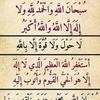 سُبْحَانَ اللَّهِ وَالْحَمْدُ لِلَّهِ وَلَا
إِلَهَ إِلَّا اللَّهُ وَاللَّهُ أَكْبَرُ
لَا حَوْلَ وَلَا قُوَّةَ إِلَّا بِاللَّهِ
أَسْتَغْفِرُ اللَّهَ الْعَظِيمَ الَّذِي لَا إِلَهَ
إِلَّا هُوَ الْحَيُّ الْقَيُّومُ وَأَتُوبُ إِلَيْهِ